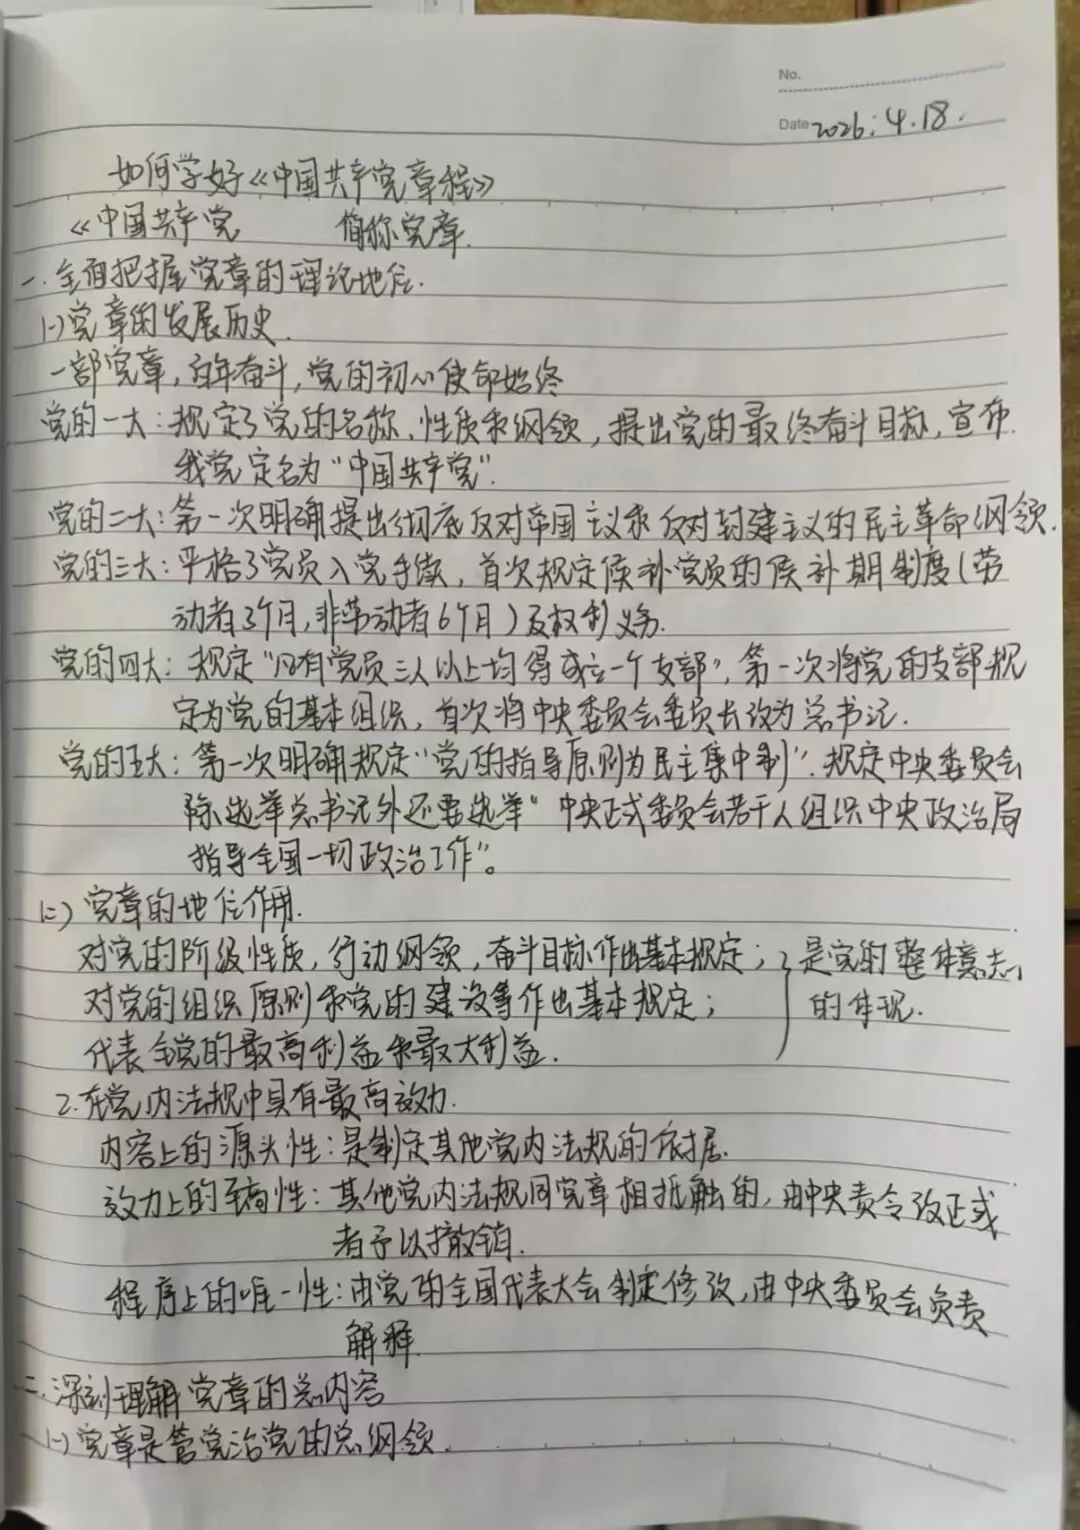 No.
Date 2026.4.18.
如何学好《中国共产党章程》
《中国共产党 简称党章.
一.全面把握党章的理论地位.
(一)党章的发展历史.
一部党章,百年奋斗,党的初心使命始终
党的一大:规定了党的名称、性质和纲领,提出党的最终奋斗目标,宣布.
我党定名为“中国共产党”.
党的二大:第一次明确提出彻底反对帝国主议和反对封建主义的民主革命纲领.
党的三大:严格了党员入党手续,首次规定候补党员的候补期制度(劳
动者3个月,非劳动者6个月)及权利义务.
党的四大:规定“凡有党员三人以上均得成立一个支部”,第一次将党的支部规
定为党的基本组织,首次将中央委员会委员长改为总书记.
党的五大:第一次明确规定“党的指导原则为民主集中制”.规定中央委员会
除选举总书记外还要选举“中央正式委员会若干人组织中央政治局
指导全国一切政治工作”。
(二)党章的地位作用.
对党的阶级性质,行动纲领,奋斗目标作出基本规定;
对党的组织原则和党的建设等作出基本规定;
代表全党的最高利益和最大利益.
是党的整体意志
的体现.
2.在党内法规中具有最高效力.
内容上的源头性:是制定其他党内法规的依据.
效力上的至高性:其他党内法规同党章相抵触的,由中央责令改正或
者予以撤销.
程序上的唯一性:由党的全国代表大会制定修改,由中央委员会负责
解释.
二.深刻理解党章的总内容
(一)党章是管党治党的总纲领.